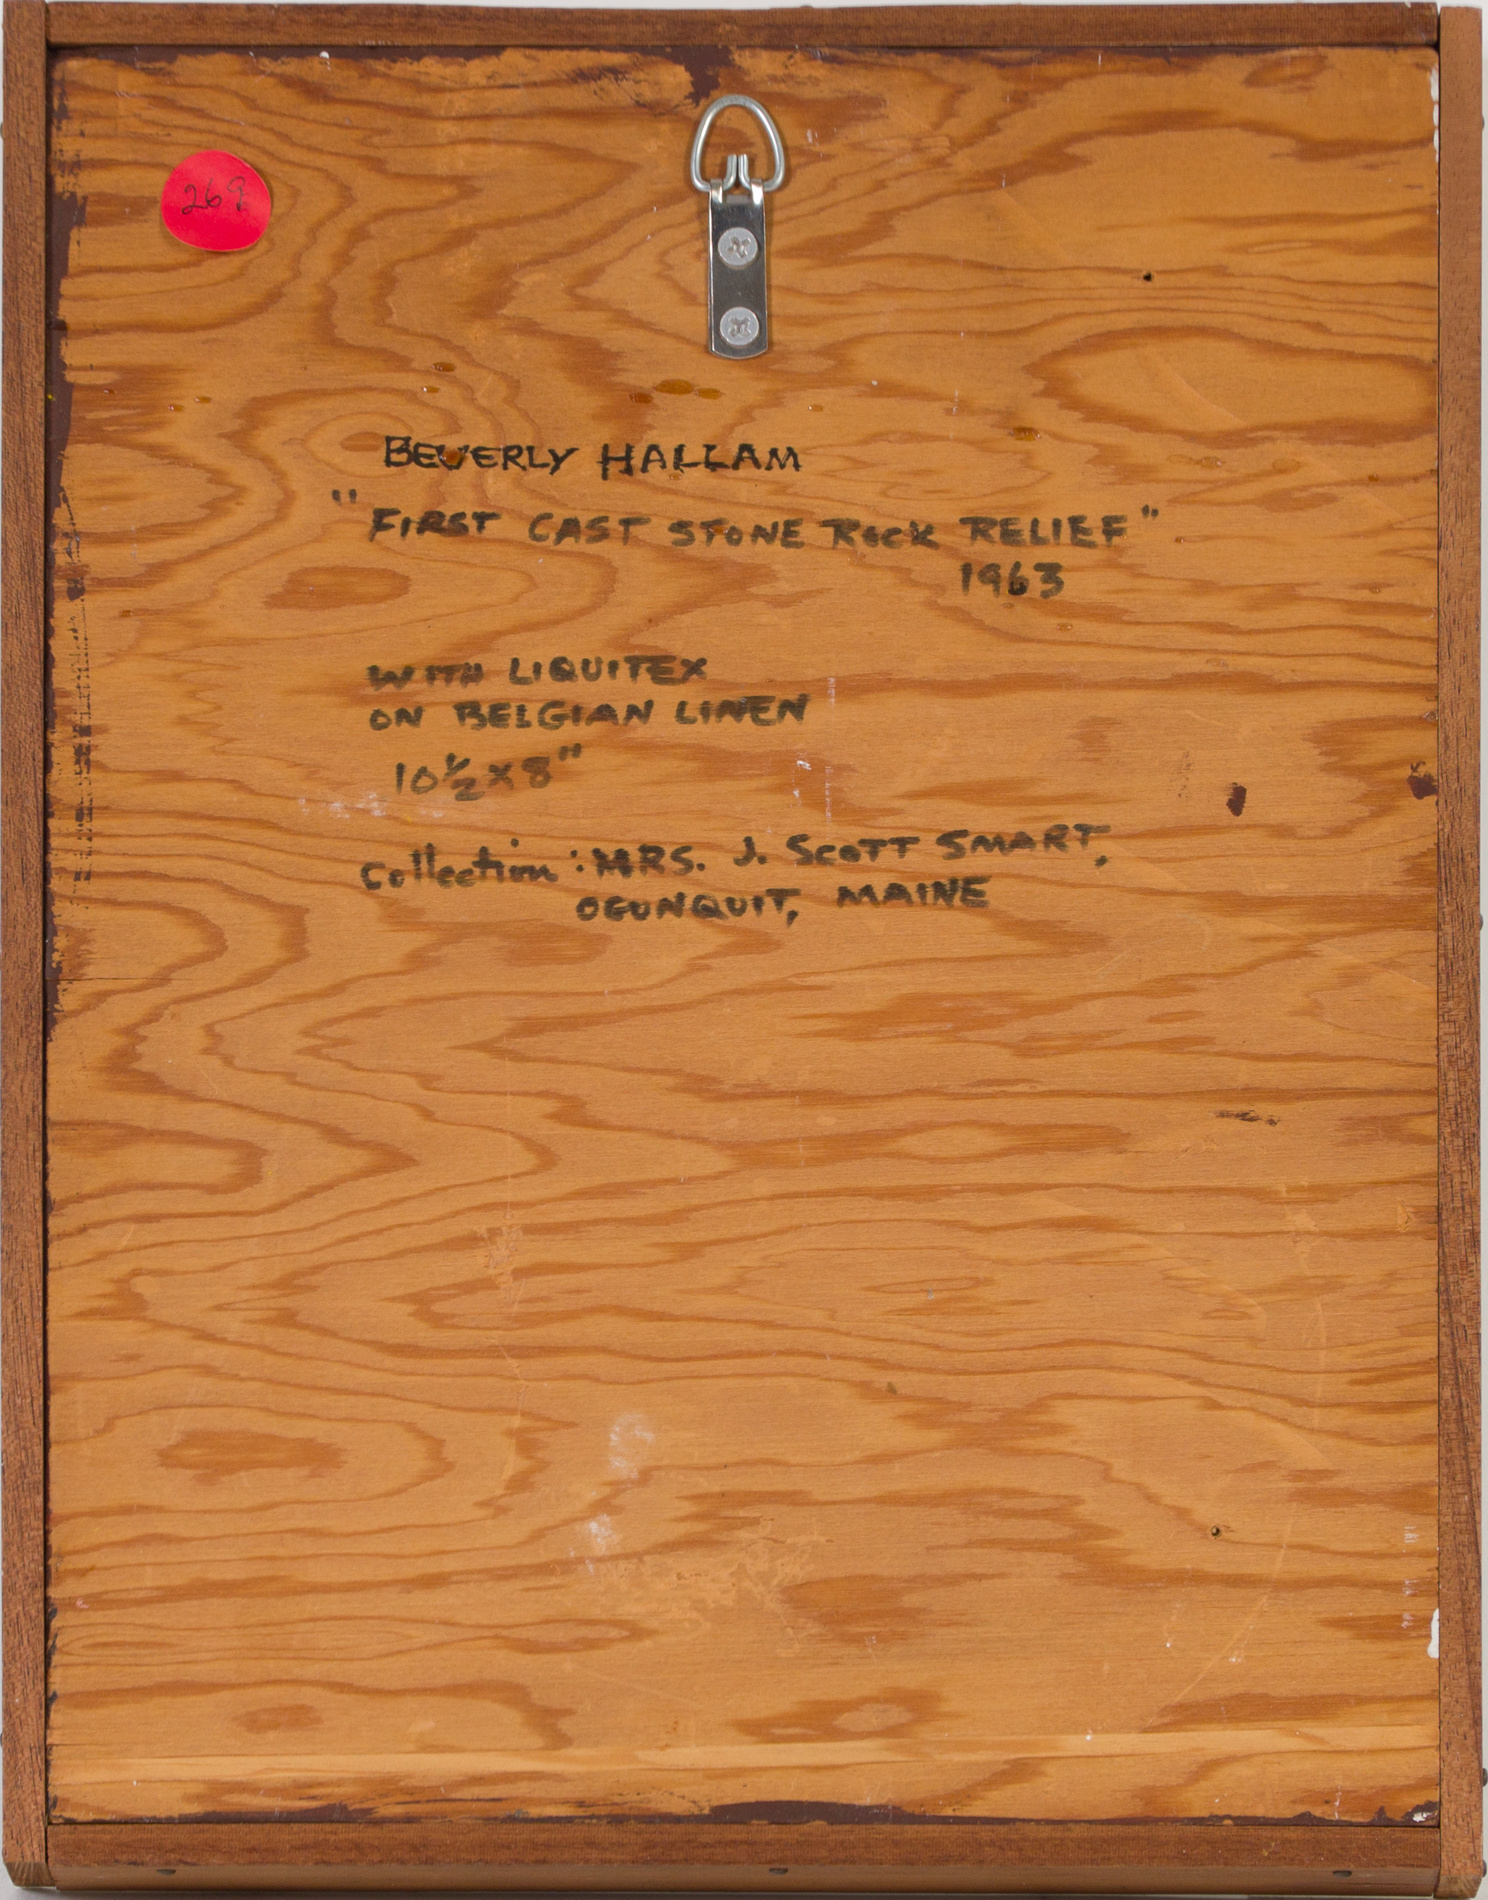 269
BEVERLY HALLAM
"FIRST CAST STONE ROCK RELIEF"
1963
WITH LIQUITEX
ON BELGIAN LINEN
10½ x 8"
Collection: MRS. J. SCOTT SMART,
OGUNQUIT, MAINE